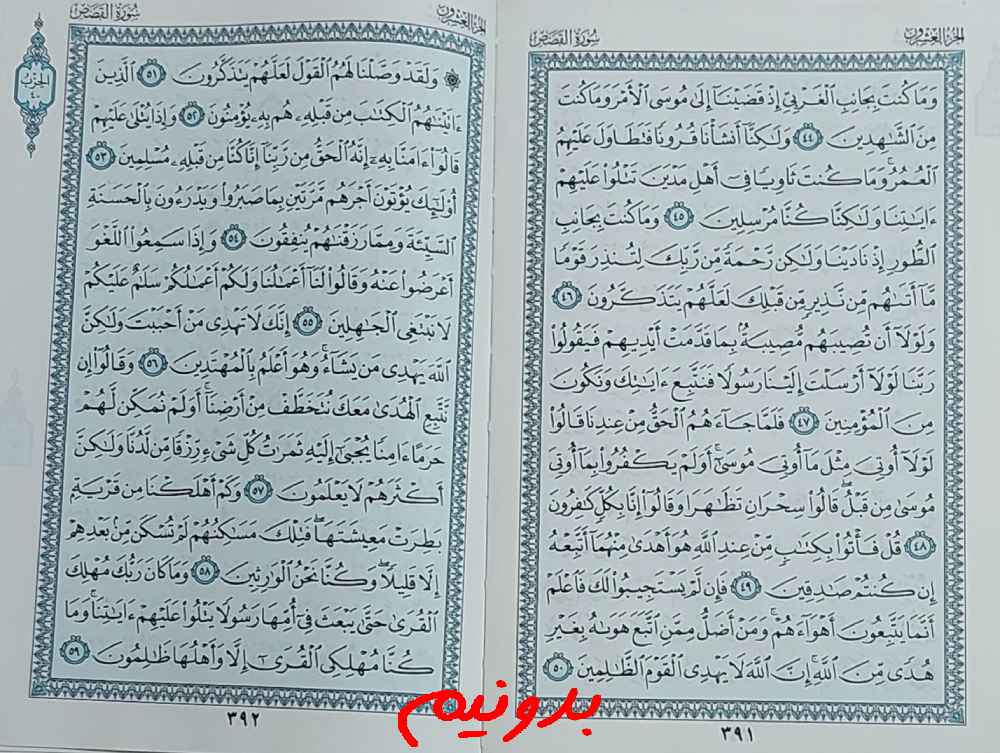 الجزء العشرون
سورة القصص
وَمَا كُنتَ بِجَانِبِ الْغَرْبِيِّ إِذْ قَضَيْنَا إِلَىٰ مُوسَى الْأَمْرَ وَمَا كُنتَ
مِنَ الشَّاهِدِينَ ٤٤ وَلَٰكِنَّا أَنشَأْنَا قُرُونًا فَتَطَاوَلَ عَلَيْهِمُ
الْعُمُرُ ۚ وَمَا كُنتَ ثَاوِيًا فِي أَهْلِ مَدْيَنَ تَتْلُوا عَلَيْهِمْ
ءَايَاتِنَا وَلَٰكِنَّا كُنَّا مُرْسِلِينَ ٤٥ وَمَا كُنتَ بِجَانِبِ
الطُّورِ إِذْ نَادَيْنَا وَلَٰكِن رَّحْمَةً مِّن رَّبِّكَ لِتُنذِرَ قَوْمًا
مَّا أَتَىٰهُم مِّن نَّذِيرٍ مِّن قَبْلِكَ لَعَلَّهُمْ يَتَذَكَّرُونَ ٤٦
وَلَوْلَا أَن تُصِيبَهُم مُّصِيبَةٌ بِمَا قَدَّمَتْ أَيْدِيهِمْ فَيَقُولُوا
رَبَّنَا لَوْلَا أَرْسَلْتَ إِلَيْنَا رَسُولًا فَنَتَّبِعَ ءَايَٰتِكَ وَنَكُونَ
مِنَ الْمُؤْمِنِينَ ٤٧ فَلَمَّا جَاءَهُمُ الْحَقُّ مِنْ عِندِنَا قَالُوا
لَوْلَا أُوتِيَ مِثْلَ مَا أُوتِيَ مُوسَىٰ ۚ أَوَلَمْ يَكْفُرُوا بِمَا أُوتِيَ
مُوسَىٰ مِن قَبْلُ ۖ قَالُوا سِحْرَانِ تَظَٰهَرَا وَقَالُوا إِنَّا بِكُلٍّ كَٰفِرُونَ
٤٨ قُلْ فَأْتُوا بِكِتَٰبٍ مِّنْ عِندِ اللَّهِ هُوَ أَهْدَىٰ مِنْهُمَا أَتَّبِعْهُ
إِن كُنتُمْ صَٰدِقِينَ ٤٩ فَإِن لَّمْ يَسْتَجِيبُوا لَكَ فَاعْلَمْ
أَنَّمَا يَتَّبِعُونَ أَهْوَاءَهُمْ ۚ وَمَنْ أَضَلُّ مِمَّنِ اتَّبَعَ هَوَىٰهُ بِغَيْرِ
هُدًى مِّنَ اللَّهِ ۚ إِنَّ اللَّهَ لَا يَهْدِي الْقَوْمَ الظَّٰلِمِينَ ٥٠
٣٩١
الجزء العشرون
سورة القصص
الحزب
٤٠
۞ وَلَقَدْ وَصَّلْنَا لَهُمُ الْقَوْلَ لَعَلَّهُمْ يَتَذَكَّرُونَ ٥١ الَّذِينَ
ءَاتَيْنَٰهُمُ الْكِتَٰبَ مِن قَبْلِهِ هُم بِهِ يُؤْمِنُونَ ٥٢ وَإِذَا يُتْلَىٰ عَلَيْهِمْ
قَالُوا ءَامَنَّا بِهِ إِنَّهُ الْحَقُّ مِن رَّبِّنَا إِنَّا كُنَّا مِن قَبْلِهِ مُسْلِمِينَ ٥٣
أُولَٰئِكَ يُؤْتَوْنَ أَجْرَهُم مَّرَّتَيْنِ بِمَا صَبَرُوا وَيَدْرَءُونَ بِالْحَسَنَةِ
السَّيِّئَةَ وَمِمَّا رَزَقْنَٰهُمْ يُنفِقُونَ ٥٤ وَإِذَا سَمِعُوا اللَّغْوَ
أَعْرَضُوا عَنْهُ وَقَالُوا لَنَا أَعْمَٰلُنَا وَلَكُمْ أَعْمَٰلُكُمْ سَلَٰمٌ عَلَيْكُمْ
لَا نَبْتَغِي الْجَٰهِلِينَ ٥٥ إِنَّكَ لَا تَهْدِي مَنْ أَحْبَبْتَ وَلَٰكِنَّ
اللَّهَ يَهْدِي مَن يَشَاءُ ۚ وَهُوَ أَعْلَمُ بِالْمُهْتَدِينَ ٥٦ وَقَالُوا إِن
نَّتَّبِعِ الْهُدَىٰ مَعَكَ نُتَخَطَّفْ مِنْ أَرْضِنَا ۚ أَوَلَمْ نُمَكِّن لَّهُمْ
حَرَمًا ءَامِنًا يُجْبَىٰ إِلَيْهِ ثَمَرَٰتُ كُلِّ شَيْءٍ رِّزْقًا مِّن لَّدُنَّا وَلَٰكِنَّ
أَكْثَرَهُمْ لَا يَعْلَمُونَ ٥٧ وَكَمْ أَهْلَكْنَا مِن قَرْيَةٍ
بَطِرَتْ مَعِيشَتَهَا ۖ فَتِلْكَ مَسَٰكِنُهُمْ لَمْ تُسْكَن مِّن بَعْدِهِمْ
إِلَّا قَلِيلًا ۖ وَكُنَّا نَحْنُ الْوَٰرِثِينَ ٥٨ وَمَا كَانَ رَبُّكَ مُهْلِكَ
الْقُرَىٰ حَتَّىٰ يَبْعَثَ فِي أُمِّهَا رَسُولًا يَتْلُوا عَلَيْهِمْ ءَايَٰتِنَا ۚ وَمَا
كُنَّا مُهْلِكِي الْقُرَىٰ إِلَّا وَأَهْلُهَا ظَٰلِمُونَ ٥٩
٣٩٢
بدونیم